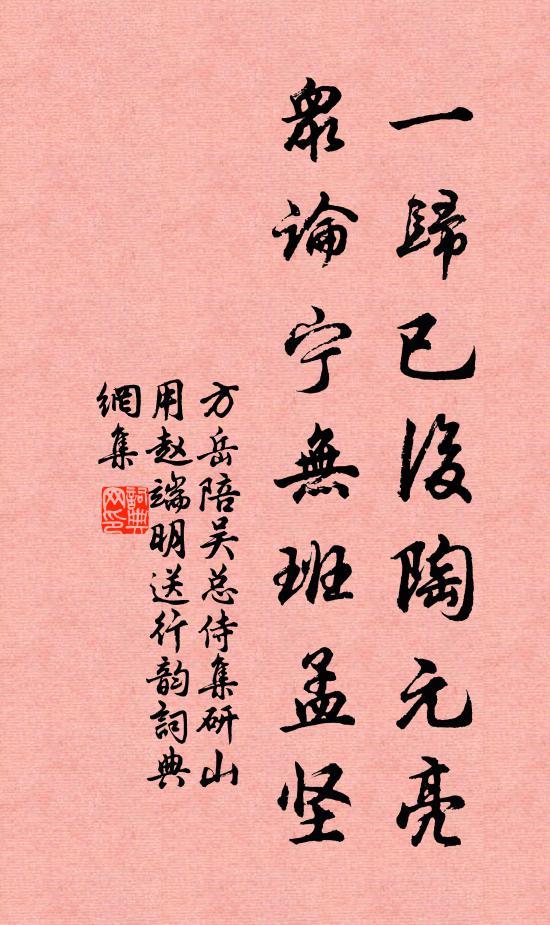 一歸已後陶元亮
眾論宁無班孟坚
方岳陪吴总侍集研山
用赵端明送行韵詞典
網集
詞典網印